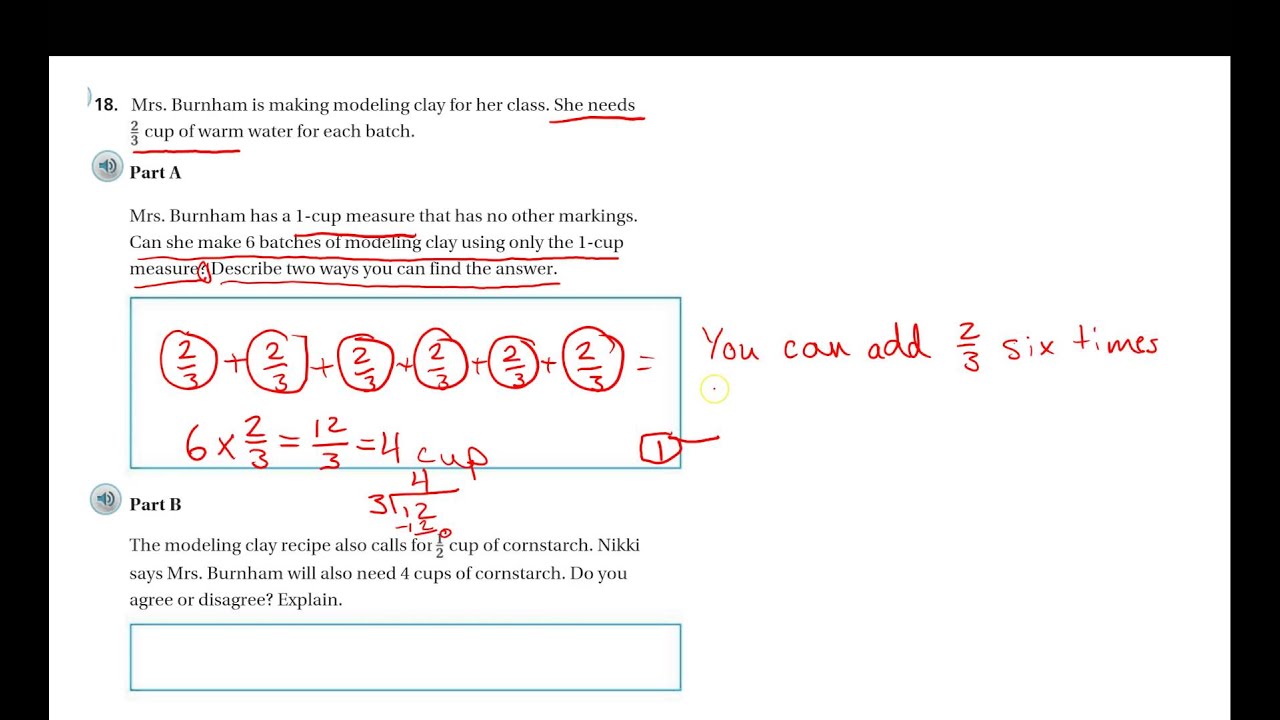 18. Mrs. Burnham is making modeling clay for her class. She needs
2/3 cup of warm water for each batch.
Part A
Mrs. Burnham has a 1-cup measure that has no other markings.
Can she make 6 batches of modeling clay using only the 1-cup
measure? Describe two ways you can find the answer.
2/3 + 2/3 + 2/3 + 2/3 + 2/3 + 2/3 =
You can add 2/3 six times
6 × 2/3 = 12/3 = 4 cup
1
4
3 12
-12
0
Part B
The modeling clay recipe also calls for 1/2 cup of cornstarch. Nikki
says Mrs. Burnham will also need 4 cups of cornstarch. Do you
agree or disagree? Explain.